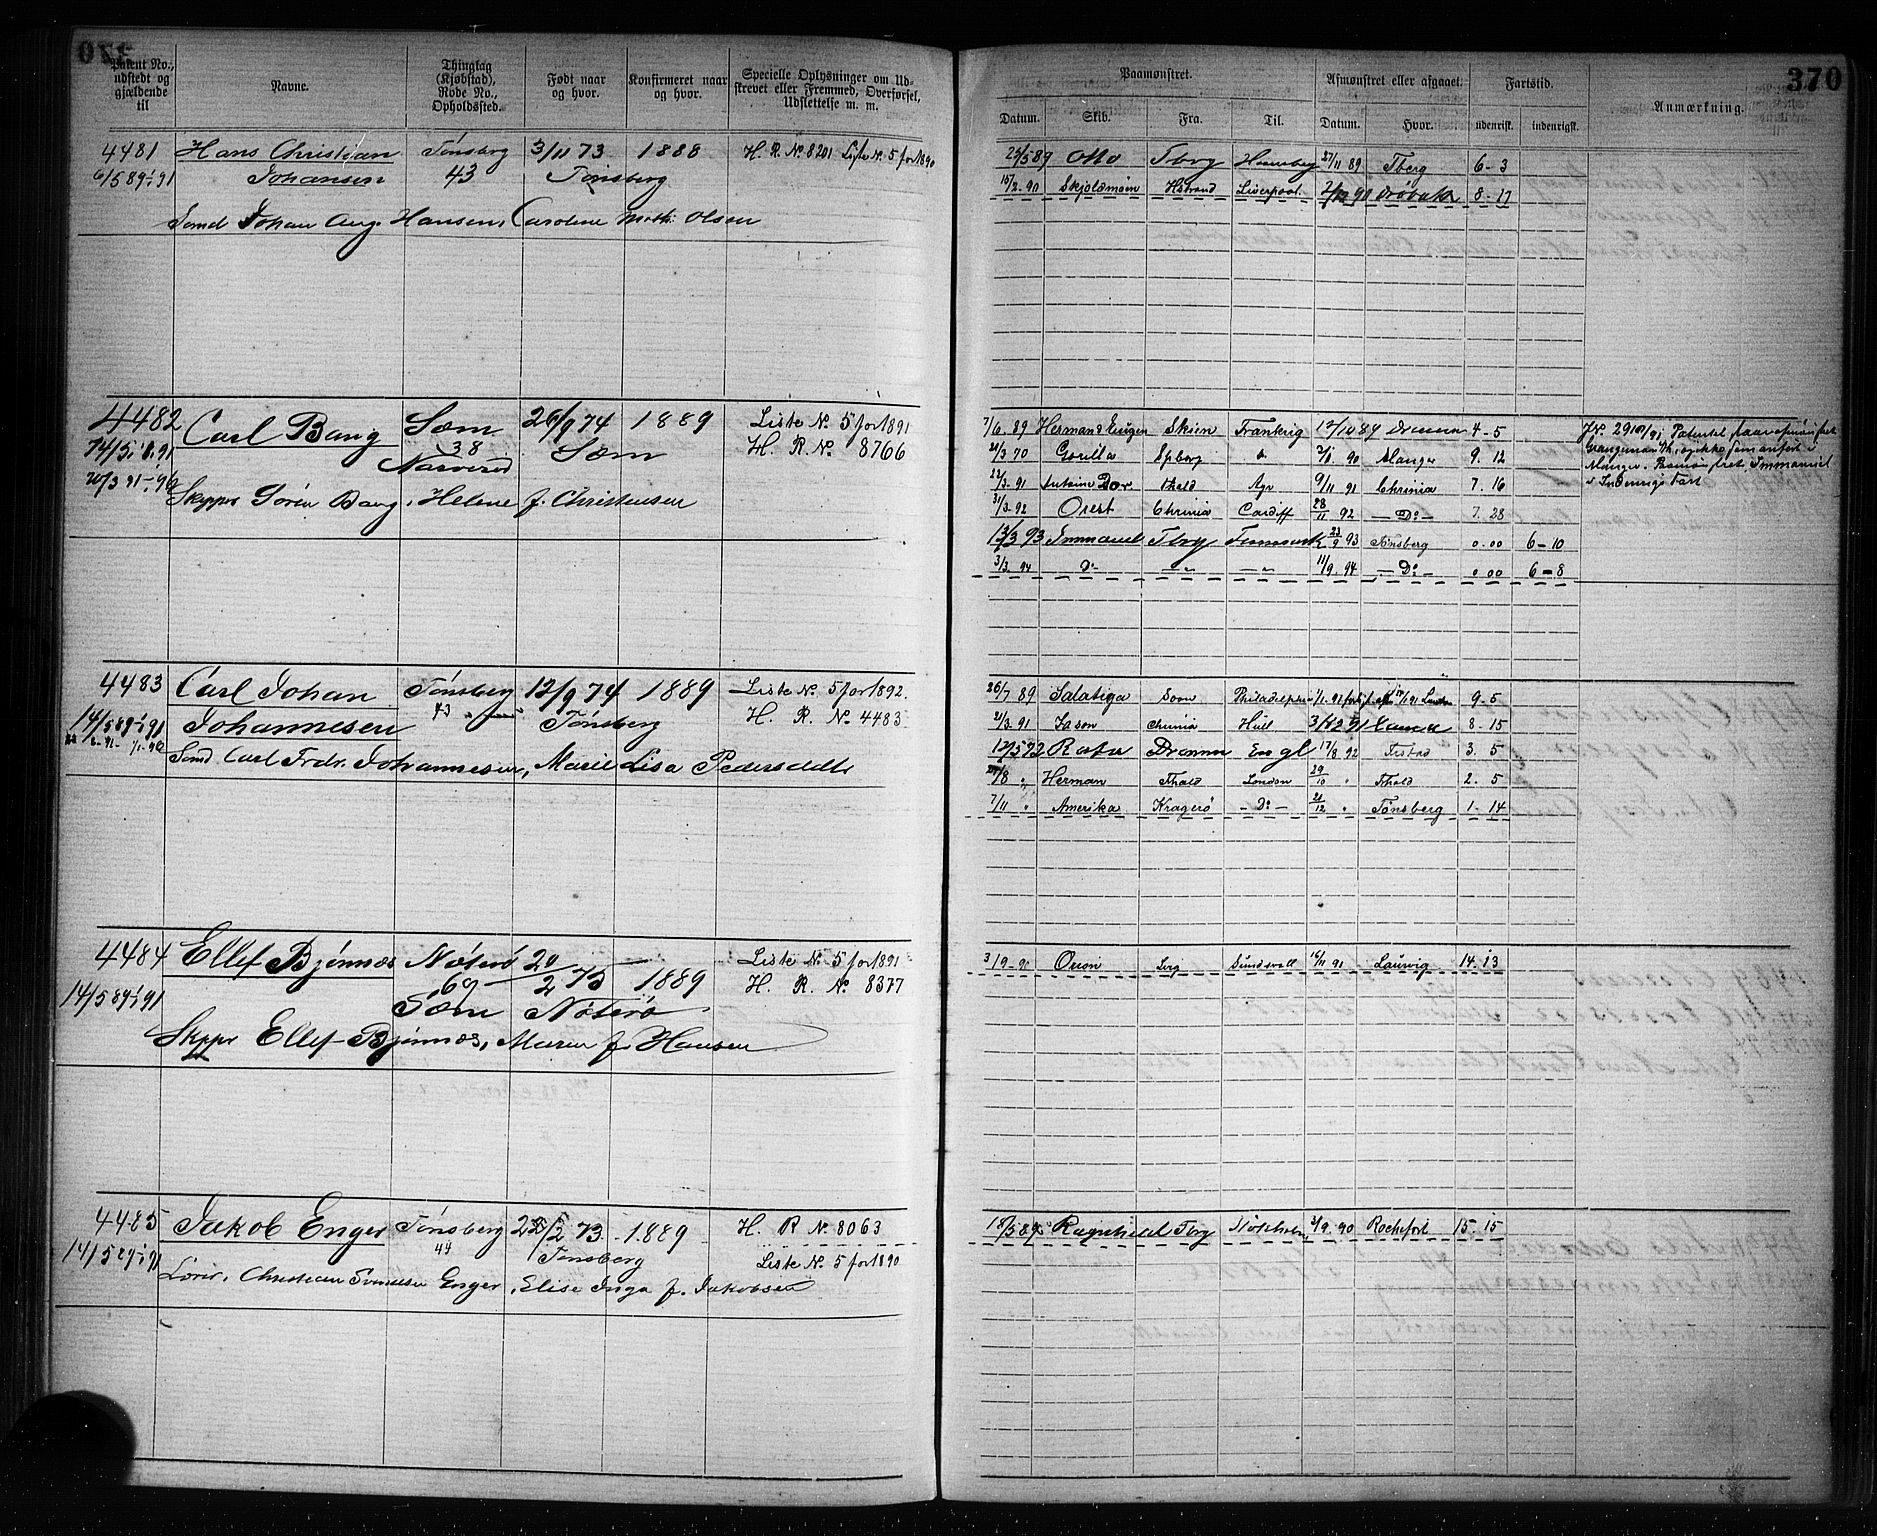 370
Patent No., udstedt og gjældende til
Navne.
Thinglag (Kjøbstad), Rode No., Opholdssted.
Født naar og hvor.
Konfirmeret naar og hvor.
Specielle Oplysninger om Udskrevet eller Fremmed, Overførsel, Udslettelse m. m.
Paamønstret.
Afmønstret eller afgaaet.
Fartstid.
Anmærkning.
Datum. Skib. Fra. Til. Datum. Hvor. udenrigsk. indenrigsk.
4481 Hans Christian Tønsberg 3/11 73 1888 H. R. No 8201 Liste No. 5 for 1890
6/5 89-1/1 91 Johansen 43 Tønsberg
Sømd Johan Aug. Hansen, Caroline Math. Olsen
25/5 89 Otto Tbrg 27/11 89 Tberg 6-3
15/2-90 Skjoldmøen Hstrand Liverpool 90 Drøbak 8-17
4482 Carl Bang Sæm 26/9 74 1889 Liste No. 5 for 1891
14/5 89-1/1 91 38 Sæm H. R. No. 8766
20/3 91-1/1 96 Narverød
Skipper Søren Bang, Helene f. Christensen
7/6 89 Herman & Eugen Skien Frankrig 12/10 89 Drammen 4-5
Gorilla 90 9. 12
22/3-91 Fhald Ayr 9/11 91 Chrinia 7. 16
31/3-92 Orest Chrinia Cardiff 28/11 92 -Do- 7. 28
13/3 93 Immanuel Tbrg 23/9 93 Tønsberg 0.00 6-10
3/3. 94 Do -"- -"- 11/9. 94 -Do- 0.00 6-8
4483 Carl Johan Tønsberg 12/9 74 1889 Liste No. 5 for 1892.
14/5 89-1/1 91 Johannesen 43 Tønsberg H. R. No 4483
Sømd Carl Fredr. Johannesen, Marie Lisa Pedersdatter
26/7 89 Salatiga Soon Philadelphia 9-5
2/3-91 Jason Chrinia Hull 8-15
12/5 92 Rota Drammen Engl 17/8 92 3. 5
Herman Fhald London 29/10 " Fhald 2. 5
7/11 " Amerika Kragerø -Do- 21/12 " Tønsberg 1-14
4484 Ellef Bjønnæs Nøterø 20/2 73 1889 Liste No. 5 for 1891
14/5 89-1/1 91 69 Sæm Nøterø H. R. No. 8377
Skippr Ellef Bjønnæs, Maren f. Hansen
3/9-91 Orion Sundsvall 16/11 91 Laurvig 14. 13
4485 Jakob Enger Tønsberg 73 1889 H. R No. 8063
14/5 89-1/1 91 44 Tønsberg Liste No. 5 for 1890
Christian Enger, Elise Inga f. Jakobsen
18/5 89 Ragnhild Tbrg 3/9. 90 Rochefort 15. 15